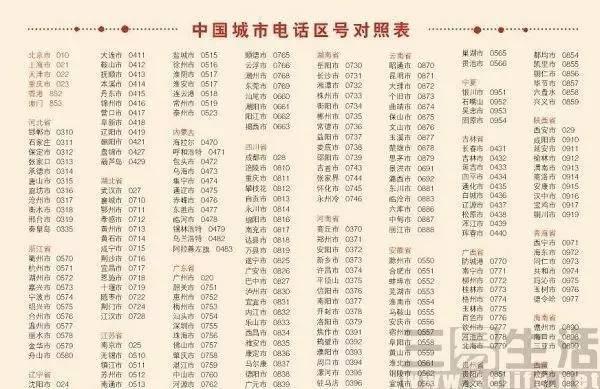 中国城市电话区号对照表
北京市 010
上海市 021
天津市 022
重庆市 023
香港 852
澳门 853
河北省
邯郸市 0310
石家庄 0311
保定市 0312
张家口 0313
承德市 0314
唐山市 0315
廊坊市 0316
沧州市 0317
衡水市 0318
邢台市 0319
秦皇岛 0335
浙江省
衢州市 0570
杭州市 0571
湖州市 0572
嘉兴市 0573
宁波市 0574
绍兴市 0575
台州市 0576
温州市 0577
丽水市 0578
金华市 0579
舟山市 0580
辽宁省
沈阳市 024
大连市 0411
鞍山市 0412
抚顺市 0413
本溪市 0414
丹东市 0415
锦州市 0416
营口市 0417
阜新市 0418
辽阳市 0419
朝阳市 0421
盘锦市 0427
葫芦岛 0429
湖北省
武汉市 027
襄城市 0710
鄂州市 0711
孝感市 0712
黄州市 0713
黄石市 0714
咸宁市 0715
荆沙市 0716
宜昌市 0717
恩施市 0718
十堰市 0719
随枣市 0722
荆门市 0724
江汉市 0728
江苏省
南京市 025
无锡市 0510
镇江市 0511
苏州市 0512
南通市 0513
盐城市 0515
徐州市 0516
淮阴市 0517
淮安市 0517
连云港 0518
常州市 0519
泰州市 0523
内蒙古
海拉尔 0470
呼和浩特 0471
包头市 0472
乌海市 0473
集宁市 0474
通辽市 0475
赤峰市 0476
东胜市 0477
临河市 0478
锡林浩特 0479
乌兰浩特 0482
阿拉善左旗 0483
广东省
广州市 020
韶关市 0751
惠州市 0752
梅州市 0753
汕头市 0754
深圳市 0755
珠海市 0756
佛山市 0757
肇庆市 0758
湛江市 0759
中山市 0760
河源市 0762
清远市 0763
顺德市 0765
云浮市 0766
潮州市 0768
东莞市 0769
汕尾市 0660
潮阳市 0661
阳江市 0662
揭西市 0663
四川省
成都市 028
涪陵市 0810
重庆市 0811
攀枝花 0812
自贡市 0813
永川市 0814
绵阳市 0816
南充市 0817
达县市 0818
万县市 0819
遂宁市 0825
广安市 0826
巴中市 0827
泸州市 0830
宜宾市 0831
内江市 0832
乐山市 0833
西昌市 0834
雅安市 0835
康定市 0836
马尔康 0837
德阳市 0838
广元市 0839
湖南省
岳阳市 0730
长沙市 0731
湘潭市 0732
株州市 0733
衡阳市 0734
郴州市 0735
常德市 0736
益阳市 0737
娄底市 0738
邵阳市 0739
吉首市 0743
张家界 0744
怀化市 0745
永州冷 0746
河南省
商丘市 0370
郑州市 0371
安阳市 0372
新乡市 0373
许昌市 0374
平顶山 0375
信阳市 0376
南阳市 0377
开封市 0378
洛阳市 0379
焦作市 0391
鹤壁市 0392
濮阳市 0393
周口市 0394
漯河市 0395
驻马店 0396
云南省
昭通市 0870
昆明市 0871
大理市 0872
个旧市 0873
曲靖市 0874
保山市 0875
文山市 0876
玉溪市 0877
楚雄市 0878
思茅市 0879
景洪市 0691
潞西市 0692
东川市 0881
临沧市 0883
六库市 0886
中甸市 0887
丽江市 0888
安徽省
滁州市 0550
合肥市 0551
蚌埠市 0552
芜湖市 0553
淮南市 0554
马鞍山 0555
安庆市 0556
宿州市 0557
阜阳市 0558
黄山市 0559
淮北市 0561
铜陵市 0562
宣城市 0563
六安市 0564
巢湖市 0565
贵池市 0566
宁夏
银川市 0951
石嘴山 0952
吴忠市 0953
固原市 0954
吉林省
长春市 0431
吉林市 0432
延吉市 0433
四平市 0434
通化市 0435
白城市 0436
辽源市 0437
松原市 0438
浑江市 0439
珲春市 0440
广西省
防城港 0770
南宁市 0771
柳州市 0772
桂林市 0773
梧州市 0774
玉林市 0775
百色市 0776
钦州市 0777
河池市 0778
北海市 0779
贵州省
贵阳市 0851
遵义市 0852
安顺市 0853
都均市 0854
凯里市 0855
铜仁市 0856
毕节市 0857
六盘水 0858
兴义市 0859
陕西省
西安市 029
咸阳市 0910
延安市 0911
榆林市 0912
渭南市 0913
商洛市 0914
安康市 0915
汉中市 0916
宝鸡市 0917
铜川市 0919
青海省
西宁市 0971
海东市 0972
同仁市 0973
共和市 0974
玛沁市 0975
玉树市 0976
德令哈 0977
海南省
儋州市 0890
海口市 0898
三亚市 0899
三易生活